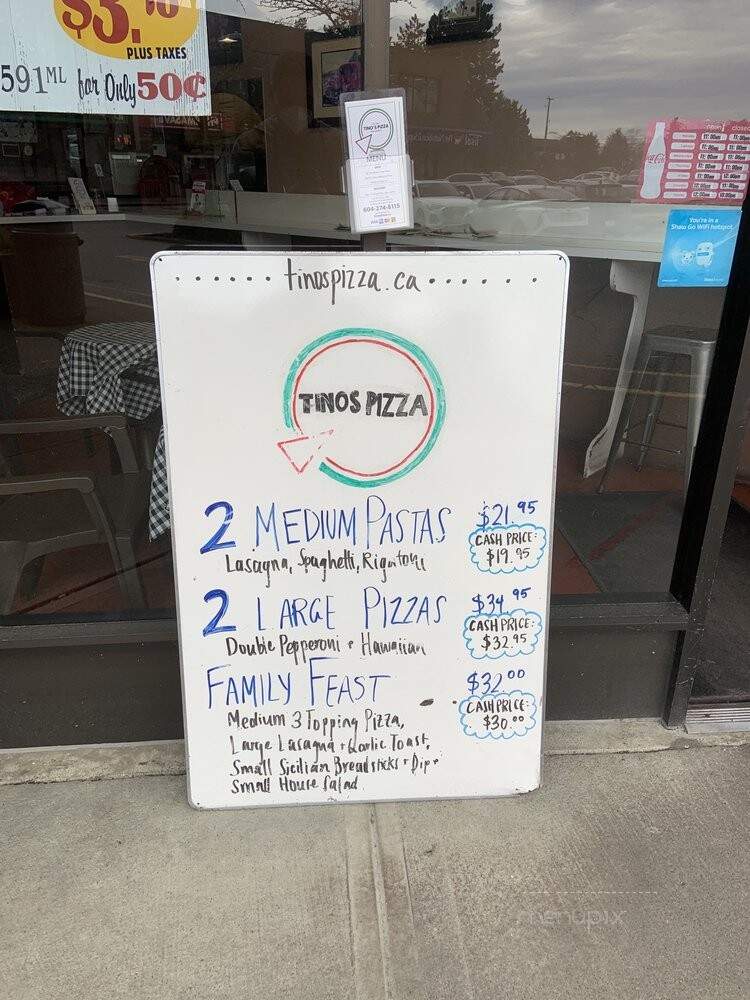 $3.
PLUS TAXES
591ML for Only 50¢
TINO'S PIZZA
MENU
604-274-8115
Coca-Cola
You're in a
Shaw Go WiFi hotspot
tinospizza.ca
TINOS PIZZA
2 MEDIUM PASTAS $21.95
Lasagna, Spaghetti, Rigatoni
CASH PRICE:
$19.95
2 LARGE PIZZAS $34.95
Double Pepperoni + Hawaiian
CASH PRICE:
$32.95
FAMILY FEAST $32.00
CASH PRICE:
$30.00
Medium 3 Topping Pizza,
Large Lasagna + Garlic Toast,
Small Sicilian Breadsticks + Dip +
Small House Salad
menupix